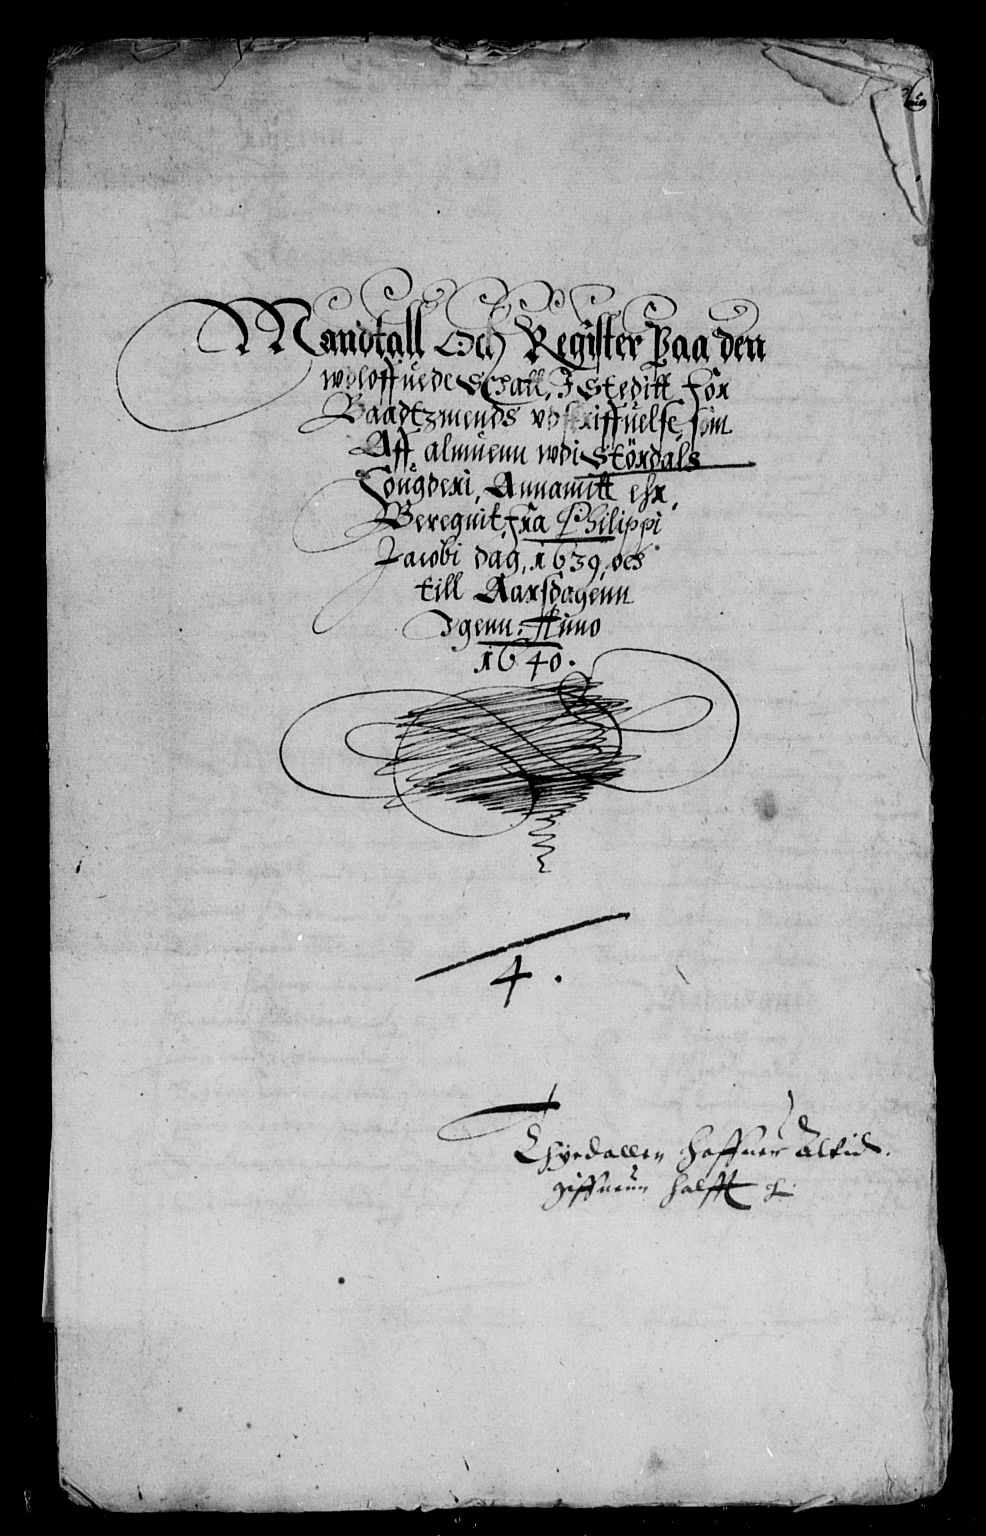 Mandtall Och Register Paa den
wdloffuede Schatt, I Steditt For
Baadtzmends vdskriffuelse, som
Aff almuenn wdi Stördals
Fougderi, Annamitt ehr,
Beregnit, fra Philippi
Jacobi dag, 1639, oc
till Aarsdagenn
Igenn. Anno
1640.
4.
Thyedallen haffuer altid
giffuenn halfft